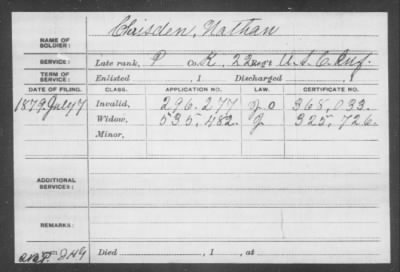 NAME OF SOLDIER: Chrisden, Nathan
SERVICE: Late rank, P Co. K, 22 Reg't U.S.C. Inf.
TERM OF SERVICE: Enlisted , 1 Discharged , 1
DATE OF FILING. CLASS. APPLICATION NO. LAW. CERTIFICATE NO.
1879 July 7 Invalid, 296.277 J O 368,033.
Widow, 535,482. J 325,726.
Minor,
ADDITIONAL SERVICES:
REMARKS:
Died , 1 , at